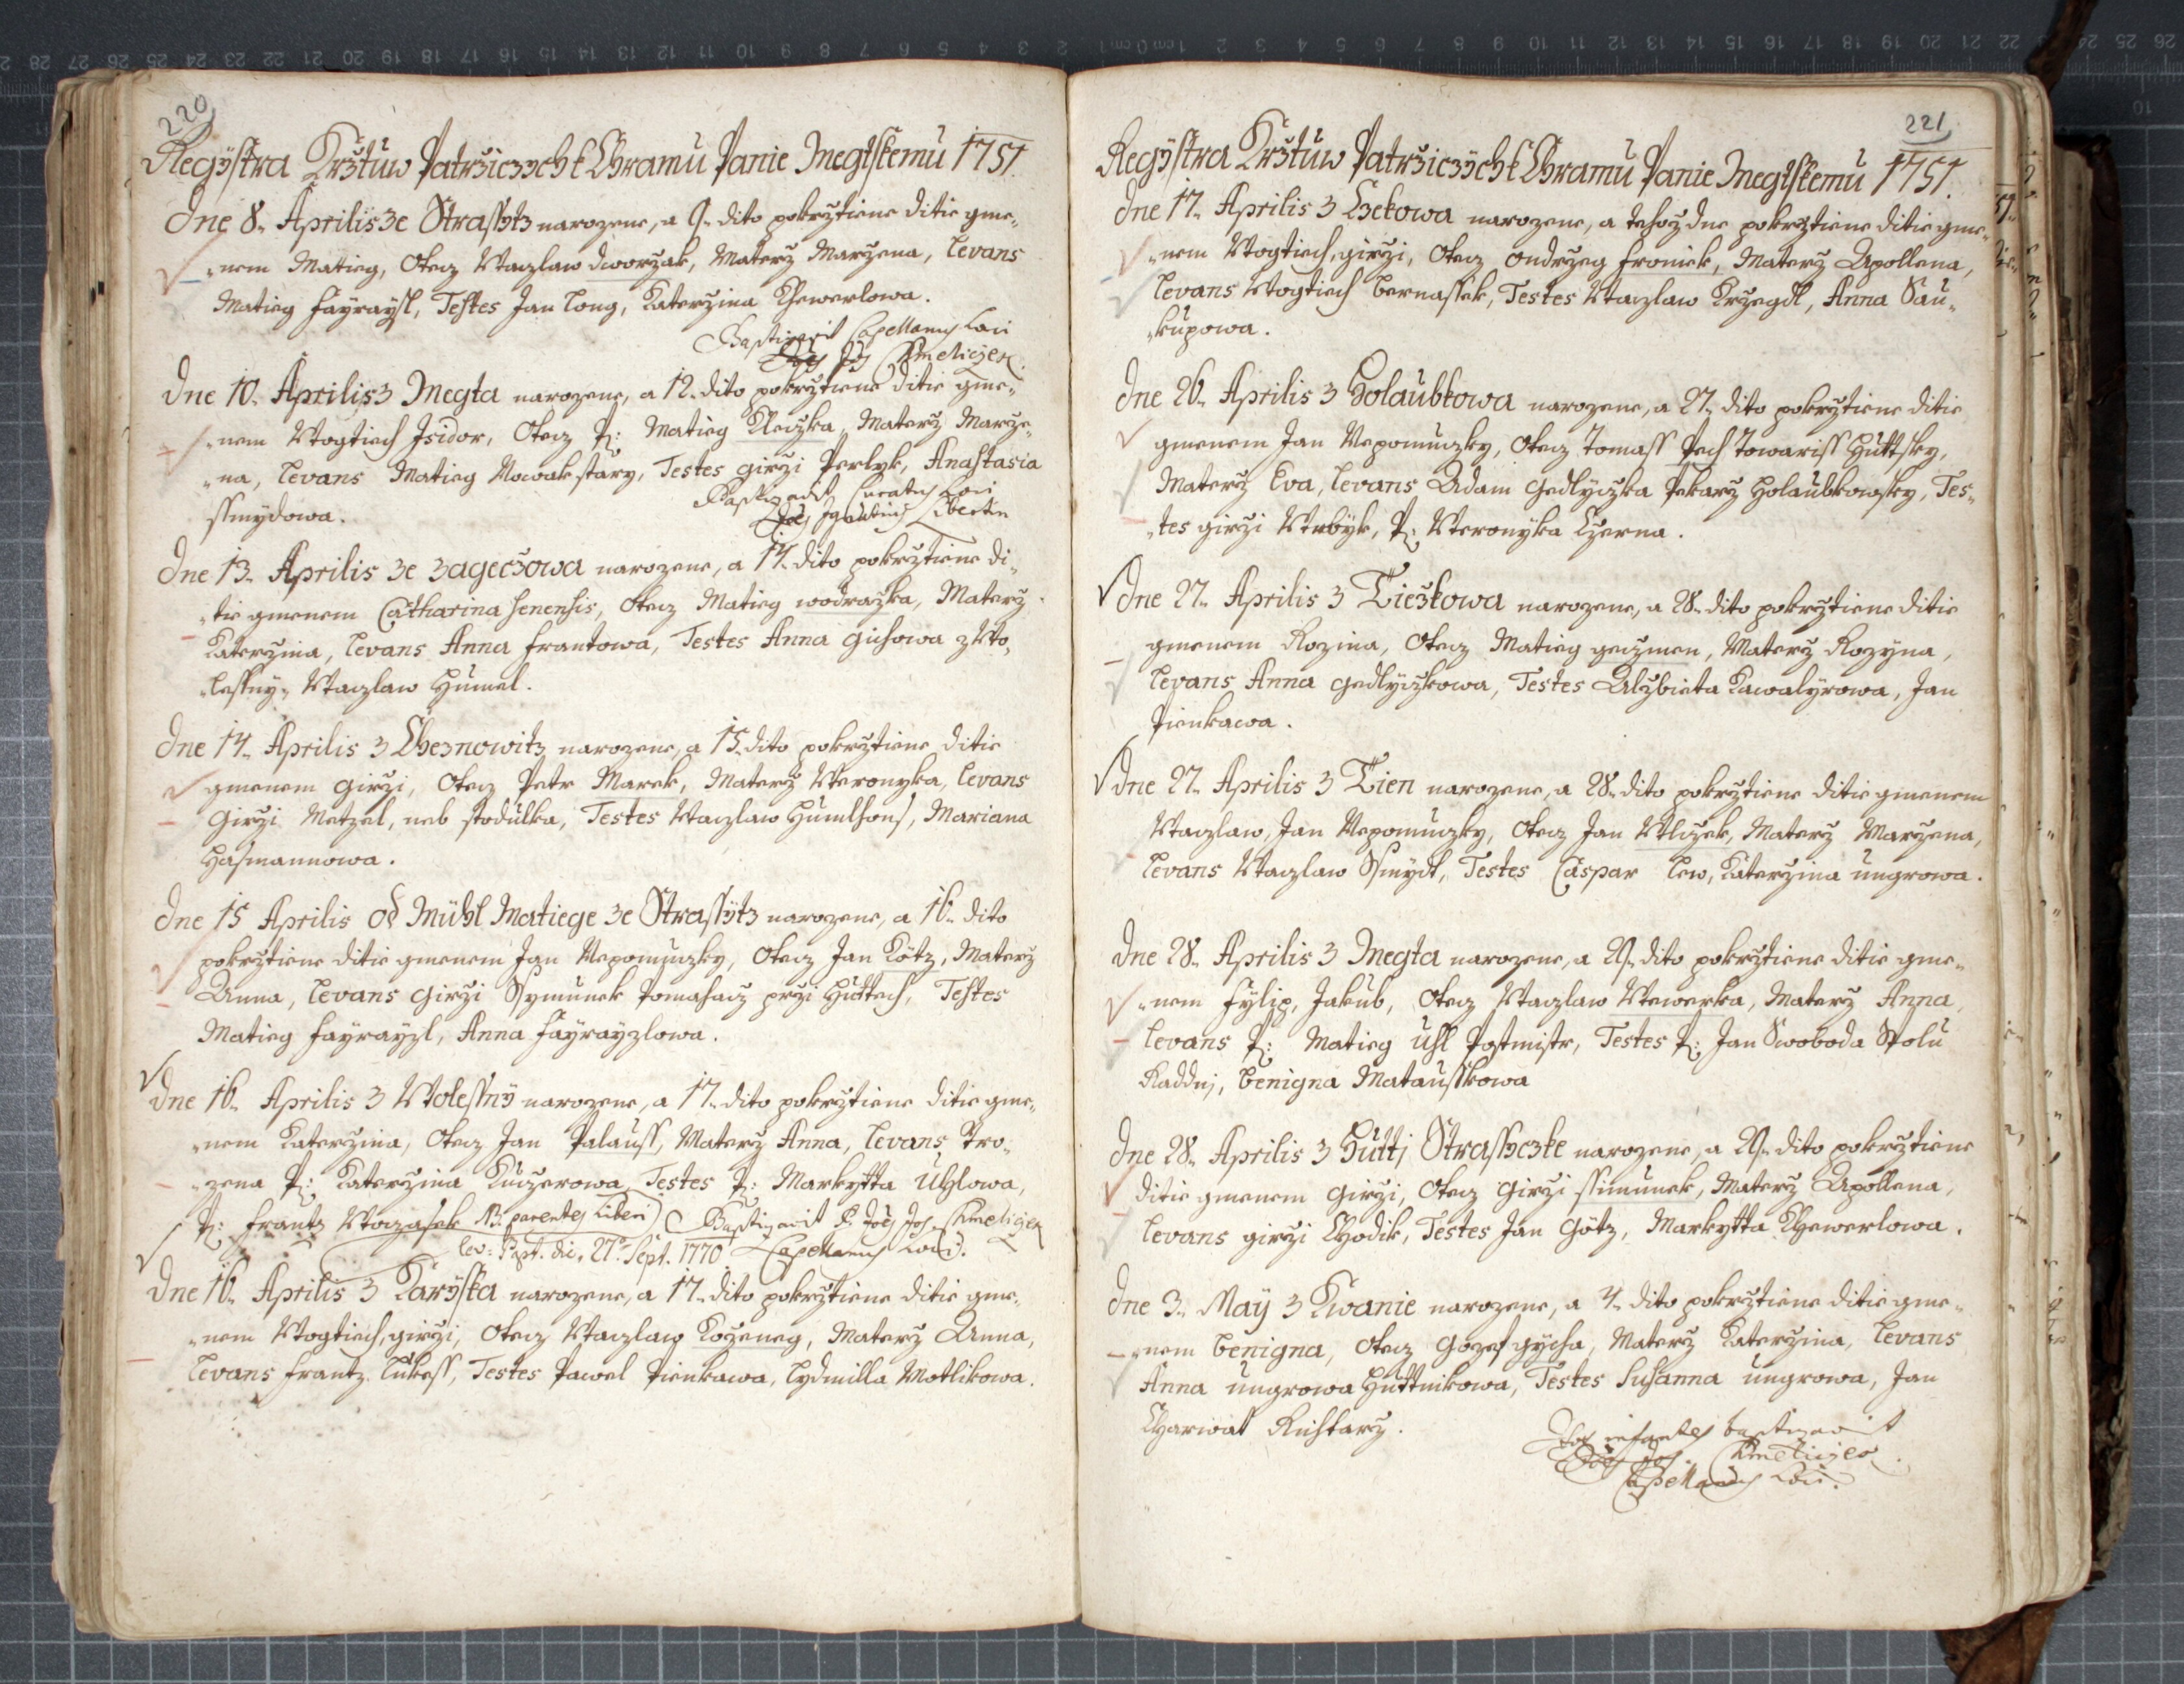 220
Regÿstra Krztuw Patrziczych k Chramu Panie Megtskemu 1751.
Dne 8. Aprilis ze Strassytz narozene, a 9. dito pokrztiene ditie gme-
-nem Mattieg, Otecz Waczlaw Dworzak, Materz Marzena, Levans
Matieg Fayraysl, Testes Jan Long, Katerzina Khewerlowa.
Baptizavit Capellanus Loci
Kmeliczek
Dne 10. Aprilis z Megta narozene, a 12. dito pokrztiene ditie gme-
-nem Wogtiech Isidor, Otecz P: Matieg Kleczka, Materz Marze-
-na, Levans Matieg Nowak stary, Testes Girzi Perlyk, Anastasia
ssmÿdowa.
Curatus Loci
Dne 13. Aprilis ze Zageczowa narozene, a 14. dito pokrztiene di-
-tie gmenem Catharina Senensis, Otecz Matieg Wodrazka, Materz
Katerzina, Levans Anna Frantowa, Testes Anna Gichowa z Wo-
-lessny, Waczlaw Humel.
Dne 14. Aprilis z Cheznowitz narozene, a 15. dito pokrztiene ditie
gmenem Girzi, Otecz Petr Marek, Materz Weronyka, Levans
Girzi Metzel, neb stodulka, Testes Waczlaw Humlhons, Mariana
Hasmannowa.
Dne 15 Aprilis od Mühl Matiege ze Strassÿtz narozene, a 16. dito
pokrztiene ditie gmenem Jan Nepomuczky, Otecz Jan Kötz, Materz
Anna, Levans Girzi Ssymunek Pomahacz przi Huttech, Testes
Matieg Fayrayzl, Anna Fayrayzlowa.
Dne 16. Aprilis z Wolessnÿ narozene, a 17. dito pokrztiene ditie gme-
-nem Katerzina, Otecz Jan Palauss, Materz Anna, Levans Pro-
-zena P: Katerzina Kuczerowa, Testes P: Markytta Uhlowa,
P: Frantz Woczasek NB. parentes Liberi Baptizavit P. Joës Jos. Kmeliczek
lev: Bapt. die 27. Sept. 1770. Capellanus Loci.
Dne 16. Aprilis z Karÿska narozene, a 17. dito pokrztiene ditie gme-
-nem Wogtiech, Girzi, Otecz Waczlaw Kozeneg, Materz Anna,
Levans Frantz Lukess, Testes Pawel Pienkawa, Lydmilla Motlikowa.
221
Regÿstra Krztuw Patrziczÿch k Chramu Panie Megtskemu 1751.
Dne 17. Aprilis z Czekowa narozene, a tehoz dne pokrztiene ditie gme-
-nem Wogtiech, Girzi, Otecz Ondrzeg Froniek, Materz Apollena,
Levans Wogtiech Bernassek, Testes Waczlaw Krzegdl, Anna Sau-
-kupowa.
Dne 26. Aprilis z Holaubkowa narozene, a 27. dito pokrztiene ditie
gmenem Jan Nepomuczky, Otecz Tomass Pech Towariss Huttsky,
Materz Eva, Levans Adam Gedlyczka Pekarz Holaubkowsky, Tes-
-tes Girzi Wrbÿk, P: Weronyka Czerna.
Dne 27. Aprilis z Tieszkowa narozene, a 28. dito pokrztiene ditie
gmenem Rozina, Otecz Matieg Geczmen, Materz Rozyna,
Levans Anna Gedlyczkowa, Testes Alzbieta Kawalÿrowa, Jan
Pienkawa.
Dne 27. Aprilis z Tien narozene, a 28. dito pokrztiene ditie gmenem
Waczlaw, Jan Nepomuczky, Otecz Jan Wlczek, Materz Marzena,
Levans Waczlaw Ssmydt, Testes Caspar Lew, Katerzina Ungrowa.
Dne 28. Aprilis z Megta narozene, a 29. dito pokrztiene ditie gme-
-nem Fylip, Jakub, Otecz Waczlaw Wewerka, Materz Anna,
Levans P: Matieg Uhl Postmistr, Testes P: Jan Swoboda Spolu
Raddnj, Benigna Matausskowa
Dne 28. Aprilis z Huttj Strassyczke narozene, a 29. dito pokrztiene
ditie gmenem Girzi, Otecz Girzi ssimunek, Materz Apollena,
Levans Girzi Chodik, Testes Jan Götz, Markytta Khewerlowa.
Dne 3. Maÿ z Kwanie narozene, a 4. dito pokrztiene ditie gme-
-nem Benigna, Otecz Gozef Gÿcha, Materz Katerzina, Levans
Anna Ungrowa Huttnikowa, Testes Susanna Ungrowa, Jan
Charwat Richtarz.
infantes baptizavit
Kmeliczek
Capellanus Loci.